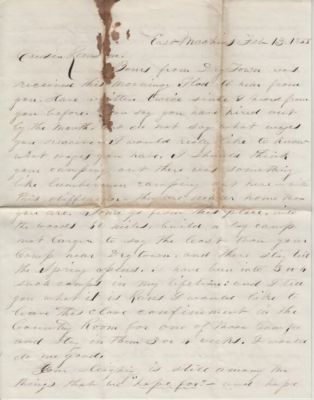 East Machias Feb 13, 18
Cousin
Yours from Dry Town was
received this morning. Glad to hear from
you. Have written twice since I heard from
you before. You say you have hired out
by the month but do not say what wages
you receive. I would really like to know
what wages you have. I should think
your camping out there was something
like lumbermen camping out here in
this
you are. from this place, into
the woods miles, build a log camp
not larger to say the least than your
Camp near Drytown, and there stay till
the Spring opens. I have been into 3 or 4
such camps in my lifetime: and I tell
you what it is I would like to
leave this close confinement in the
Counting Room for one of those Camps
and stay in them 3 or 4 weeks. I would
do me good.
Our is still among the
things that we "hope for" and hope